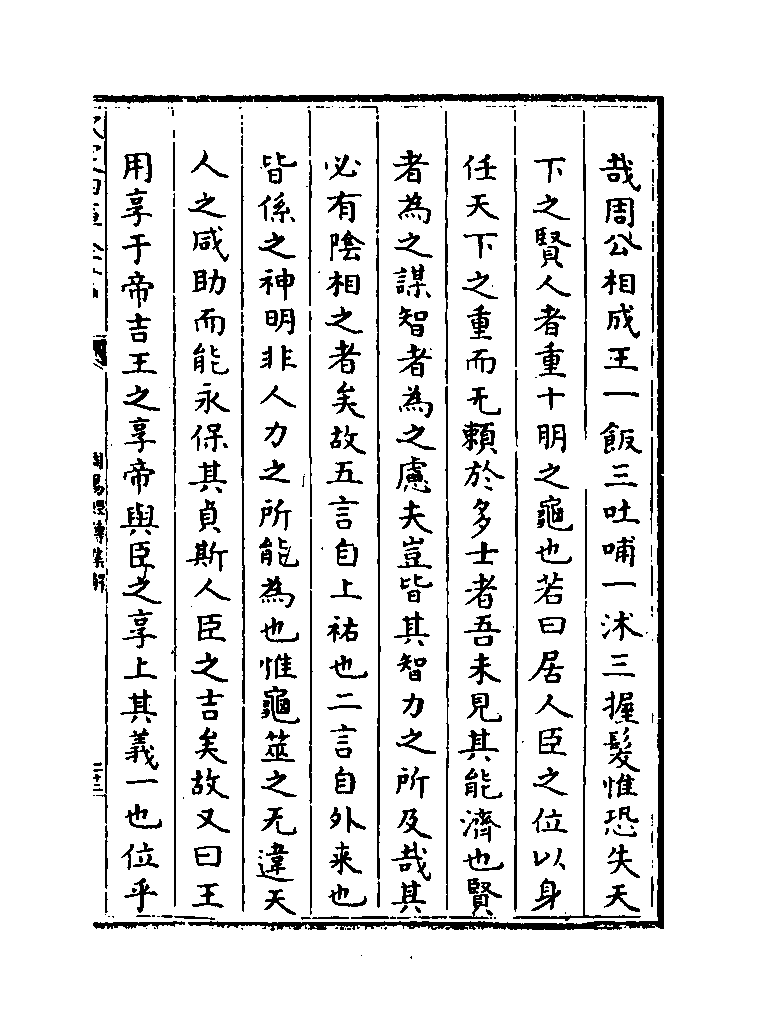 哉周公相成王一飯三吐哺一沐三握髮惟恐失天
下之賢人者重十朋之龜也若曰居人臣之位以身
任天下之重而无賴於多士者吾未見其能濟也賢
者為之謀智者為之慮夫豈皆其智力之所及哉其
必有陰相之者矣故五言自上祐也二言自外來也
皆係之神明非人力之所能為也惟龜筮之无違天
人之咸助而能永保其貞斯人臣之吉矣故又曰王
用享于帝吉王之享帝與臣之享上其義一也位乎
周易經傳集解
二十三